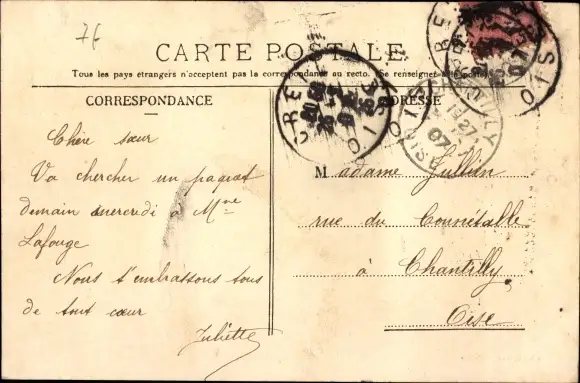 76
CARTE POSTALE
Tous les pays étrangers n'acceptent pas la correspondance au recto. (Se renseigner à la poste)
CORRESPONDANCE
ADRESSE
Chère sœur
Va chercher un paquet
demain mercredi à Mme
Lafouge
Nous t'embrassons tous
de tout cœur
Juliette
Madame Jullien
rue du Connétable
à Chantilly
Oise
CREIL
OISE
CHANTILLY
OISE
27
07